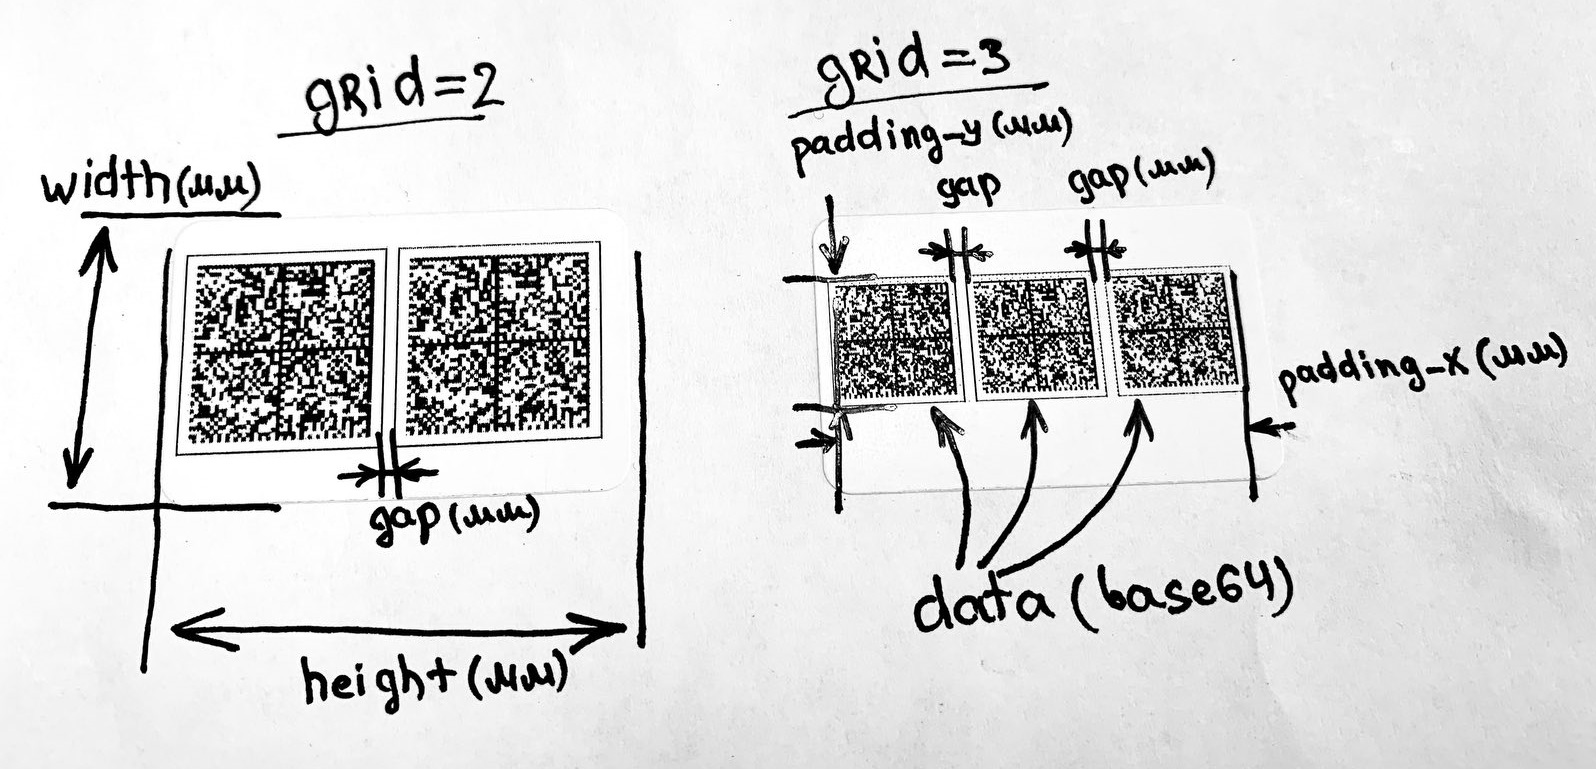 grid=2
width(мм)
gap(мм)
height(мм)
grid=3
padding-y(мм)
gap
gap(мм)
padding-x(мм)
data(base64)